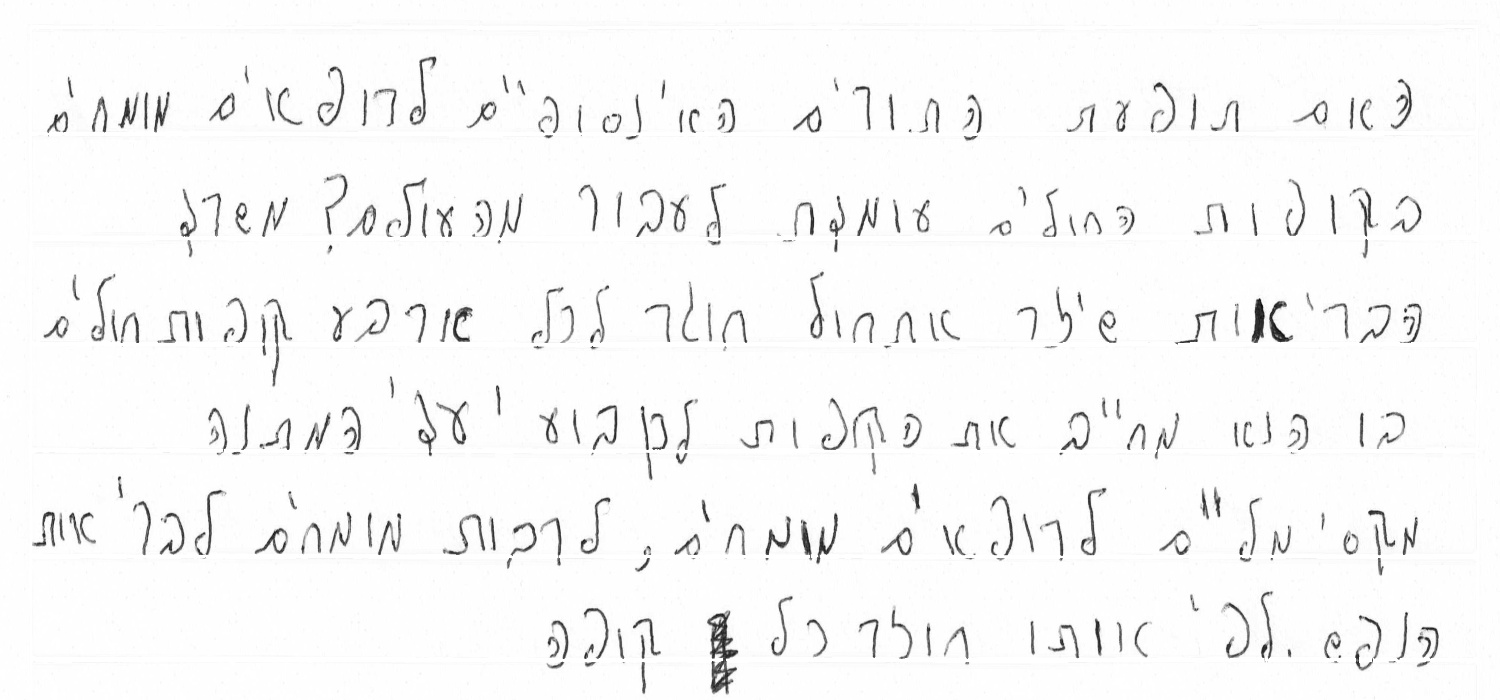 האם תופעת התורים האינסופיים לרופאים מומחים
בקופות החולים עומדת לעבור מהעולם? משרד
הבריאות שיגר אתמול חוזר לכל ארבע קופות חולים
בו הוא מחייב את הקופות לקבוע יעדי המתנה
מקסימליים לרופאים מומחים, לרבות מומחים לבריאות
הנפש. לפי אותו חוזר כל קופה